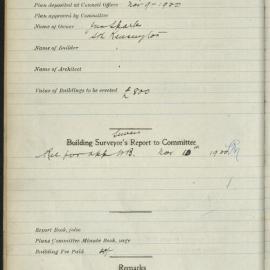 Plan deposited at Council Offices Nov 9 - 1900
Plan approved by Committee
Name of Owner Jno Sparks
Sth Kensington
Name of Builder
Name of Architect
Value of Buildings to be erected £800
Sewers
Building Surveyor's Report to Committee
Rec for app WB. Nov 10th 1900
Report Book, folio
Plans Committee Minute Book, page
Building Fee Paid
Remarks